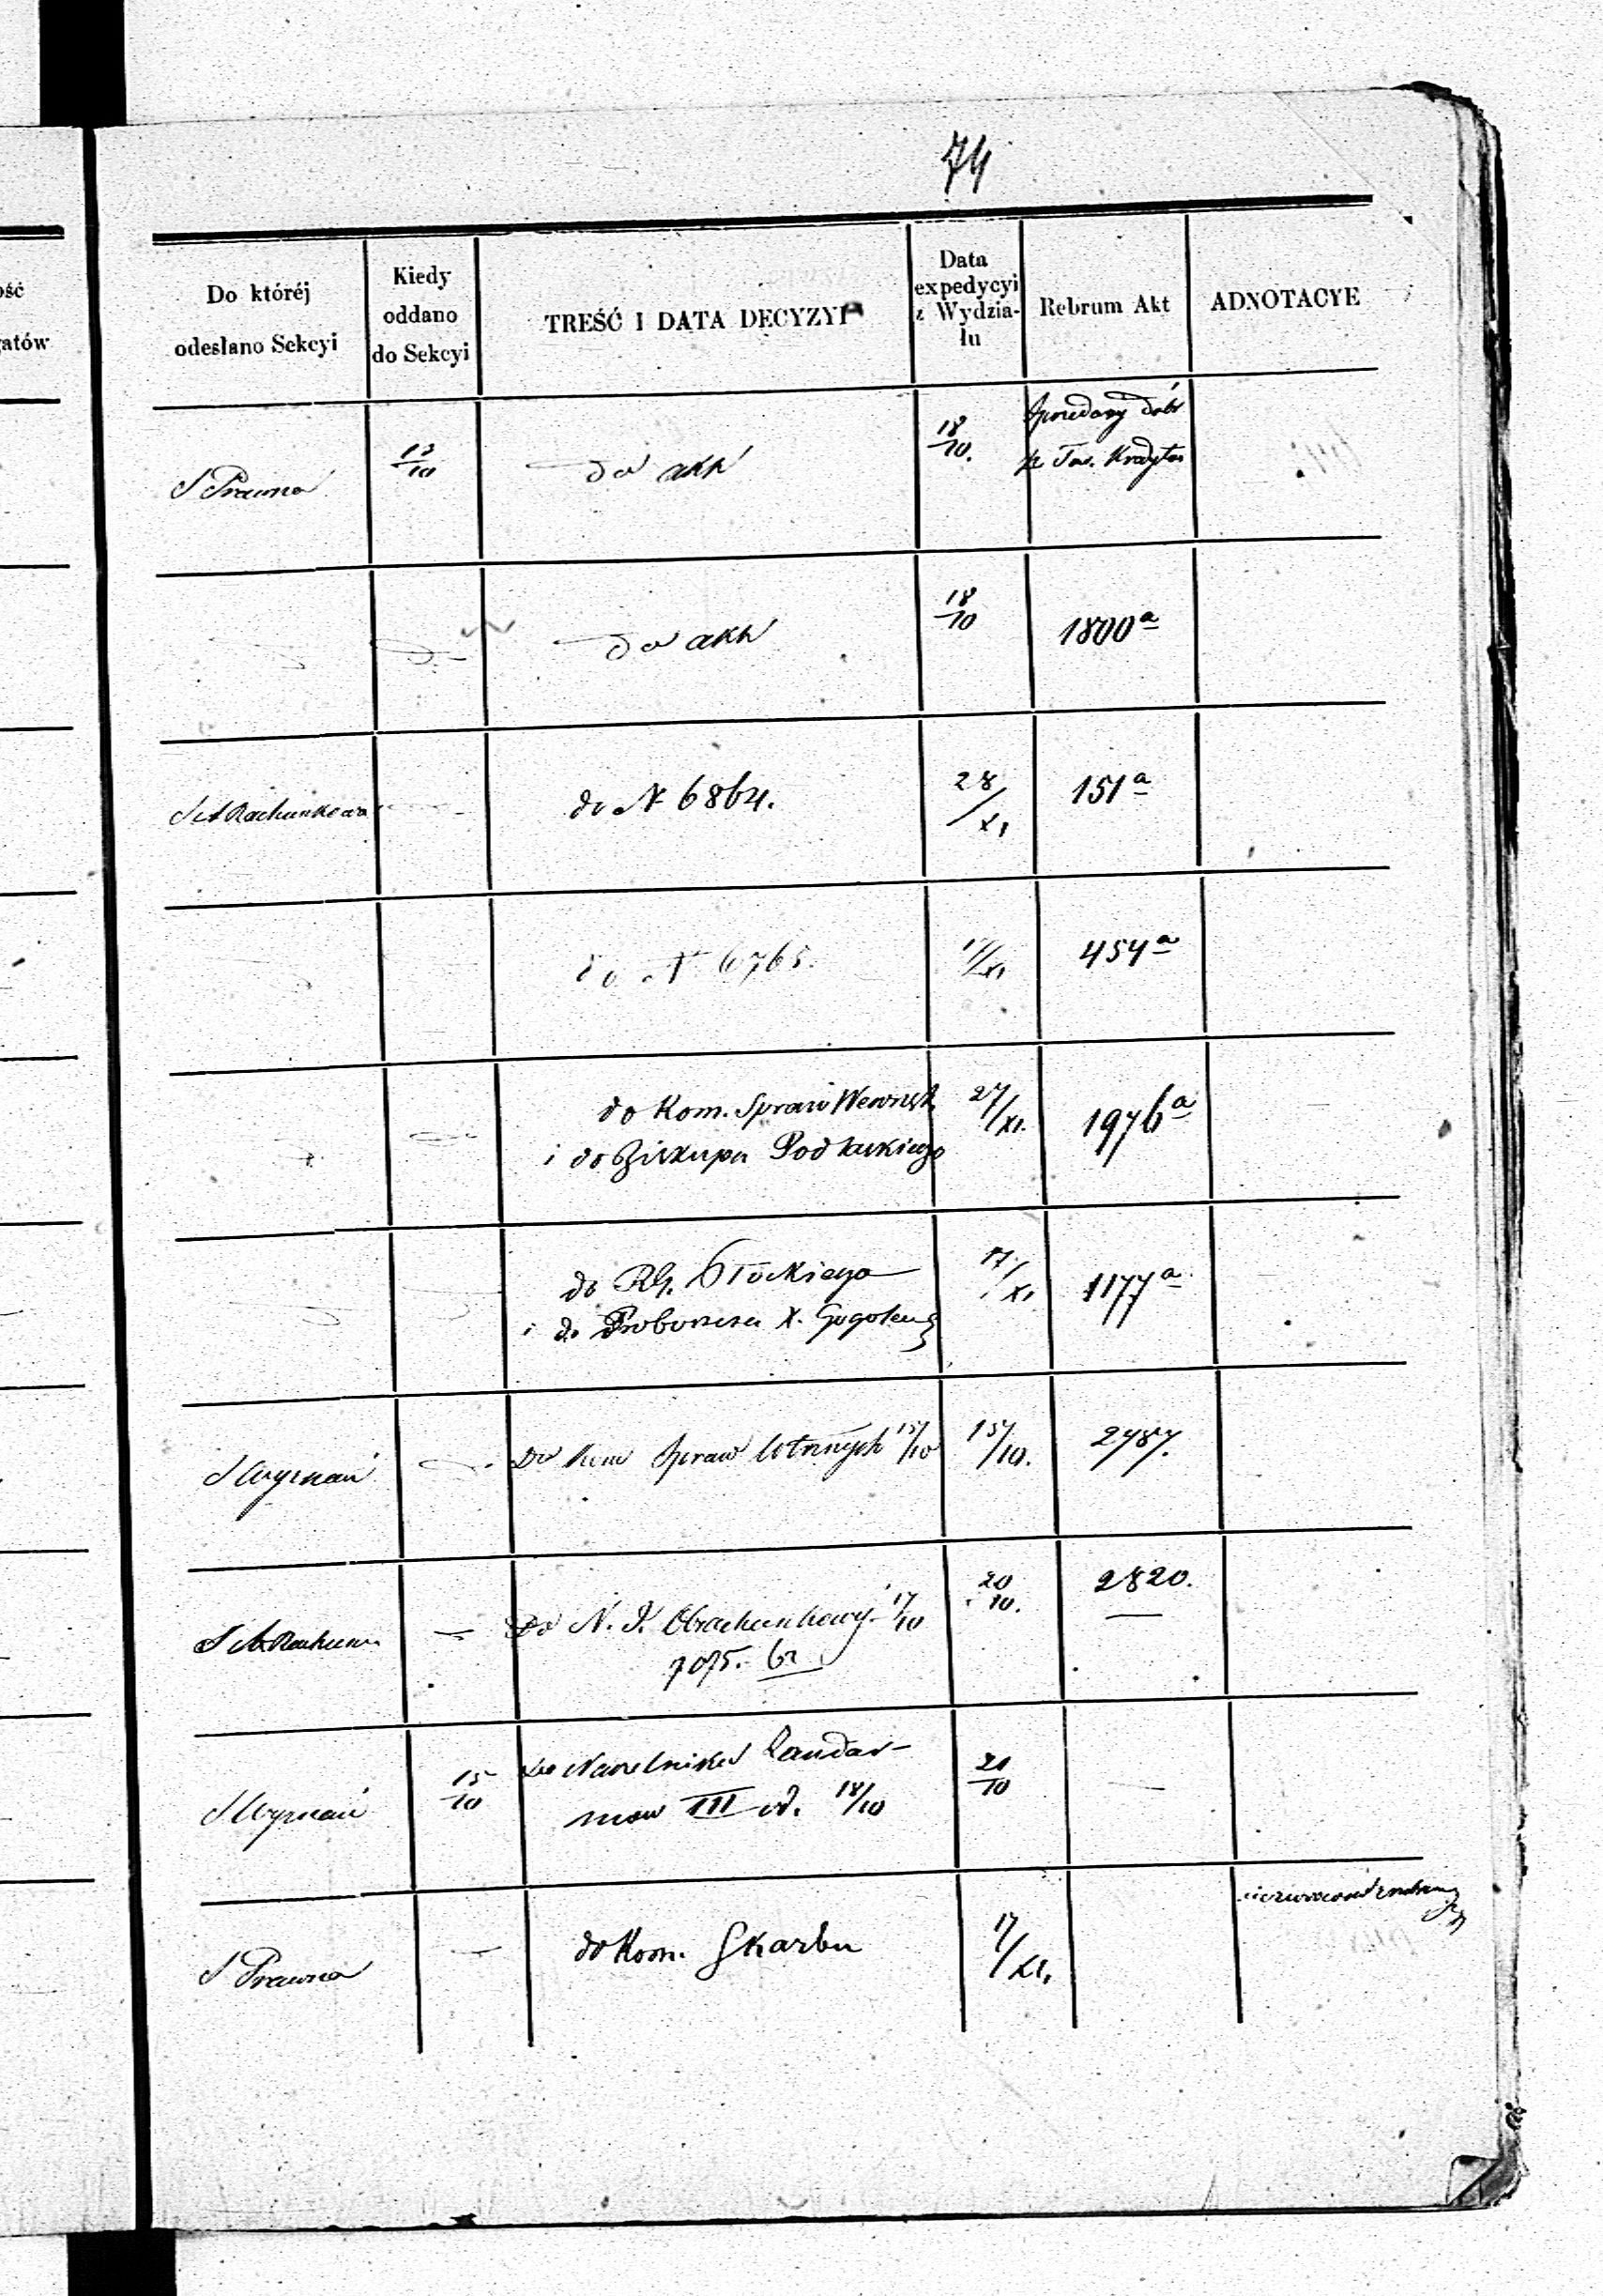 74
ość
gatów
Do któréj
odesłano Sekcyi
Kiedy
oddano
do Sekcyi
TREŚĆ I DATA DECYZYI
Data
expedycyi
z Wydzia-
łu
Rebrum Akt
ADNOTACYE
S Prawna
13/10
do akt
18/10.
Sprzedaży dóbr
pr Tow. Kredytow
do akt
18/10
1800 a
S i A Rachunkowa
do N 6864.
28/XI
151 a
do N 6765.
/XI
454 a
do Kom. Spraw Wewnęt.
i do Biskupa Podlaskiego
27/XI.
1976 a
do Rz. Płockiego
i do Proboszcza X.
17/XI
1177 a
S Wyznań
Do Kom Spraw Wtrznych 15/10
15/10.
2787.
S i A Rachun
Do N. I. Obrachunkowy. 17/10
7075.
20/10.
2820.
S Wyznań
15/10
Do Naczelnika Żandar-
mow III od. 18/10
21/10
S Prawna
do Kom. Skarbu
17/XI.